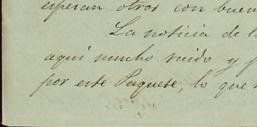 esperan otros con buen
La noticia de l
aquí mucho ruido y p
por este Paquete, lo que